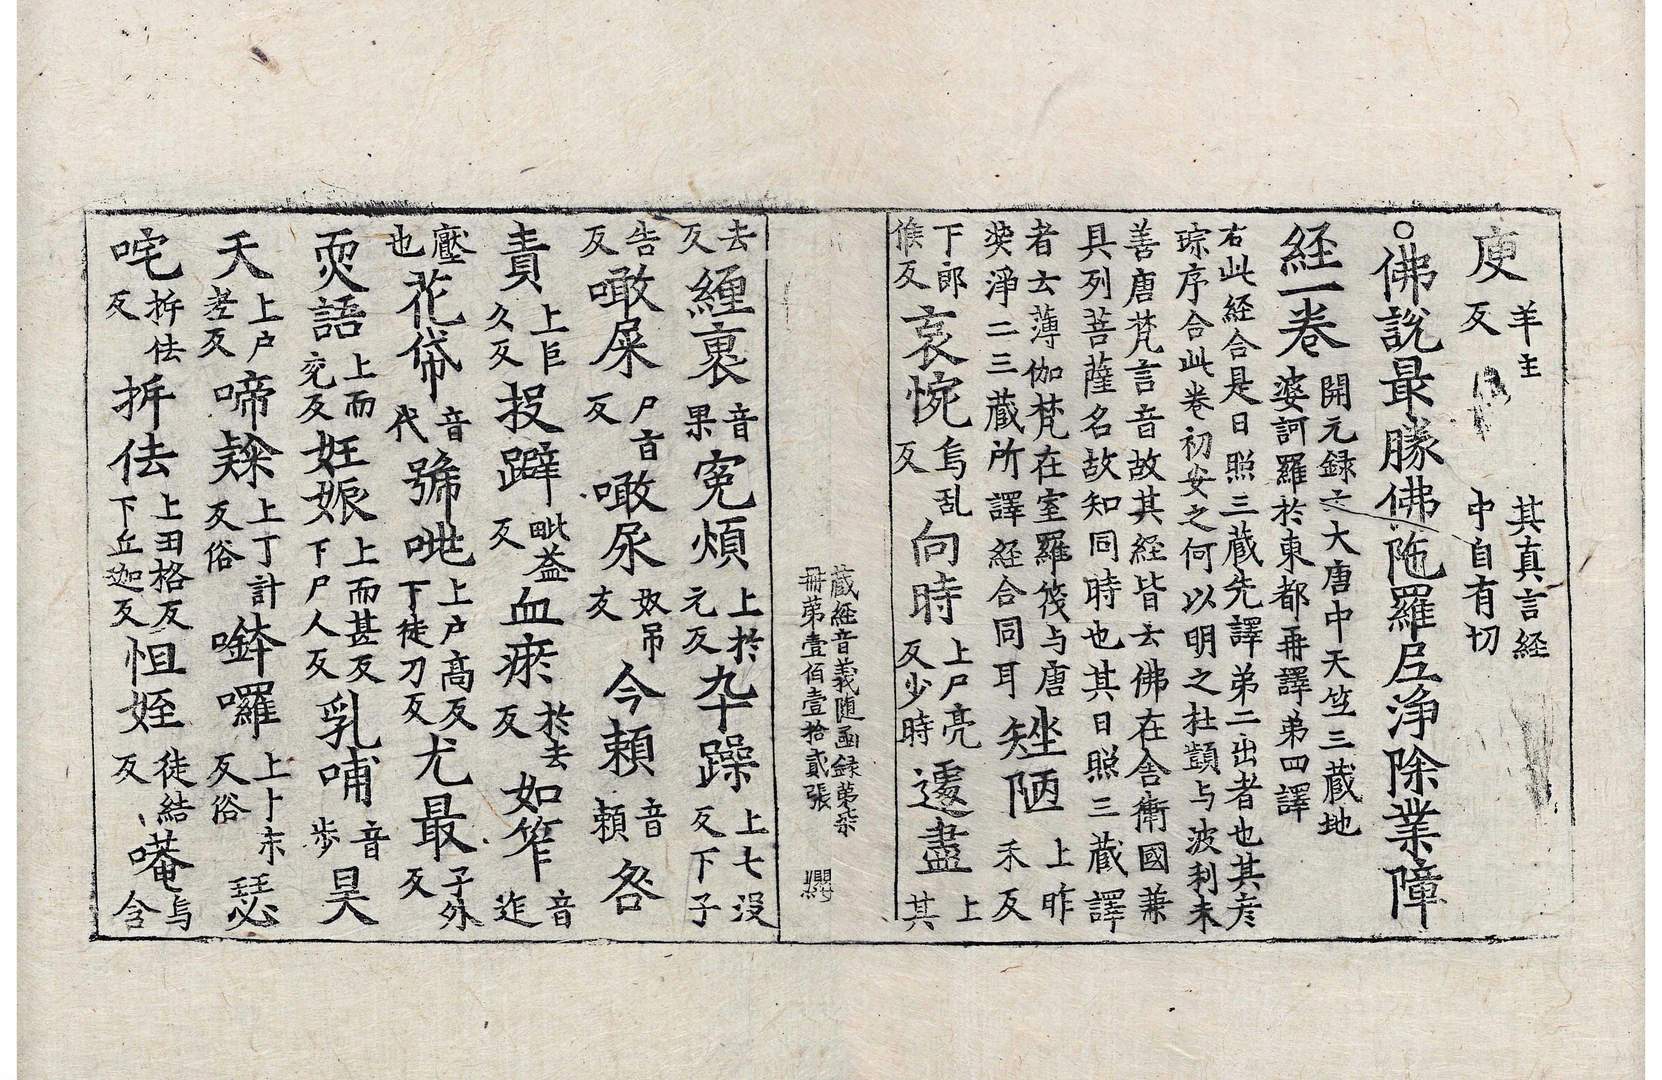 庾羊主反　其真言経中自有切
○佛說最勝佛陁羅𡰱淨除業障
経一卷開元録云大唐中天笁三藏地婆訶羅扵東都再譯弟四譯
右此経合是日照三藏先譯弟二出者也其彦
琮序合此卷初安之何以明之杜顗与波利未
善唐梵言音故其経皆云佛在舎衛國兼
具列菩薩名故知同時也其日照三藏譯
者云薄伽梵在室羅筏与唐
奘淨二三藏所譯経合同耳矬陋上昨禾反
下郎候反哀惋烏乱反向時上尸亮反少時遽盡上其
藏経音義随函録第柒
冊苐壹佰壹拾貳張
去反纏裹音果寃煩上於元反卆躁上七没反下子
告反噉屎尸旨反噉尿奴吊反今頼音頼咎
責上巨久反投躃毗益反血瘀於去反如笮音迮
壓也花帒音代號咷上户高反下徒刀反尤最子外反
耎語上而兖反妊娠上而甚反下尸人反乳哺音步昊
天上户老反啼𡁠上丁計反俗𡀍囉上卜末反俗瑟
咤拆佉反拆佉上田格反下丘迦反怛姪徒結反嚪与含